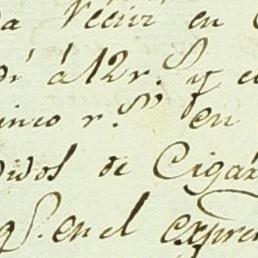 a Vecivi en
di á 12 r.s y e
inco r.s en
didos de Cigar
q.e en el expre